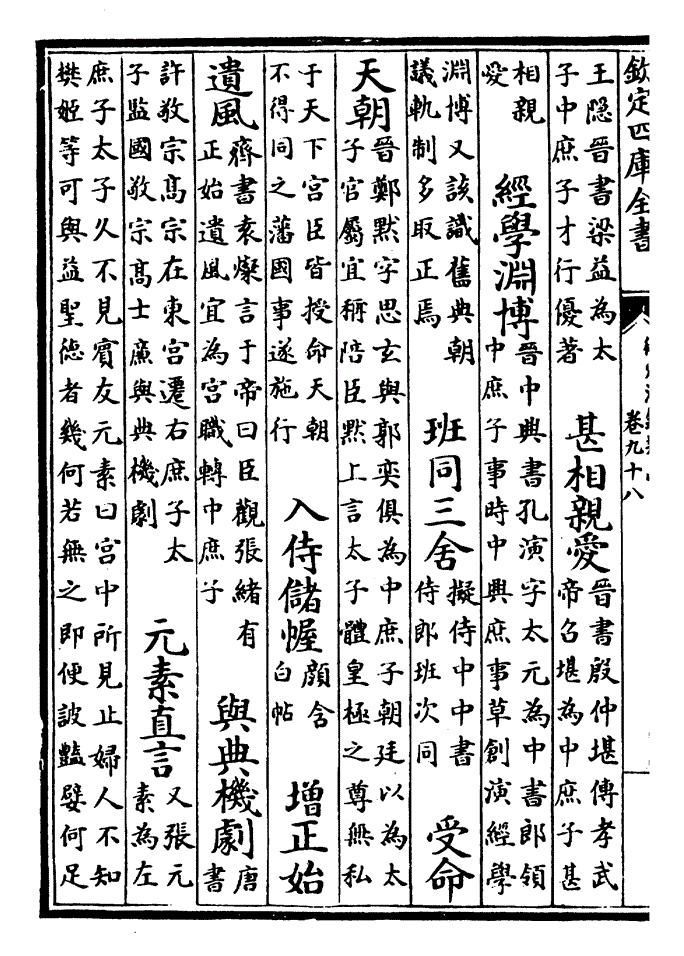 欽定四庫全書
卷九十八
王隐晉書梁益為太
子中庶子才行優著
甚相親愛
晉書殷仲堪傳孝武
帝召堪為中庶子甚
相親
愛
經學淵博
晉中興書孔演字太元為中書郎領
中庶子事時中興庶事草創演經學
淵博又該識舊典朝
議軌制多取正焉
班同三舍
擬侍中中書
侍郎班次同
受命
天朝
晉鄭默字思玄與郭奕俱為中庶子朝廷以為太
子官屬宜稱陪臣默上言太子體皇極之尊無私
于天下宮臣皆授命天朝
不得同之藩國事遂施行
入侍儲幄
顔含
白帖
增正始
遺風
齊書袁燦言于帝曰臣觀張緒有
正始遺風宜為宮職轉中庶子
與典機劇
唐
書
許敬宗髙宗在東宮遷右庶子太
子監國敬宗髙士廉與典機劇
元素直言
又張元
素為左
庶子太子久不見賓友元素曰宮中所見止婦人不知
樊姬等可與益聖德者幾何若無之即便詖豔嬖何足